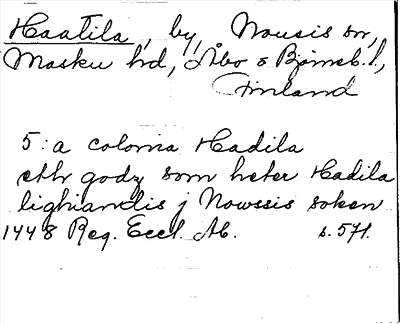 Haatila, by, Nousis sn,
Masku hd, Åbo o Björneb. l,
Finland
5: a colonia Hadila
eth godz som heter Hadila
lighiandis j Nowssis soken
1448 Reg. Eccl. Ab. s. 571.